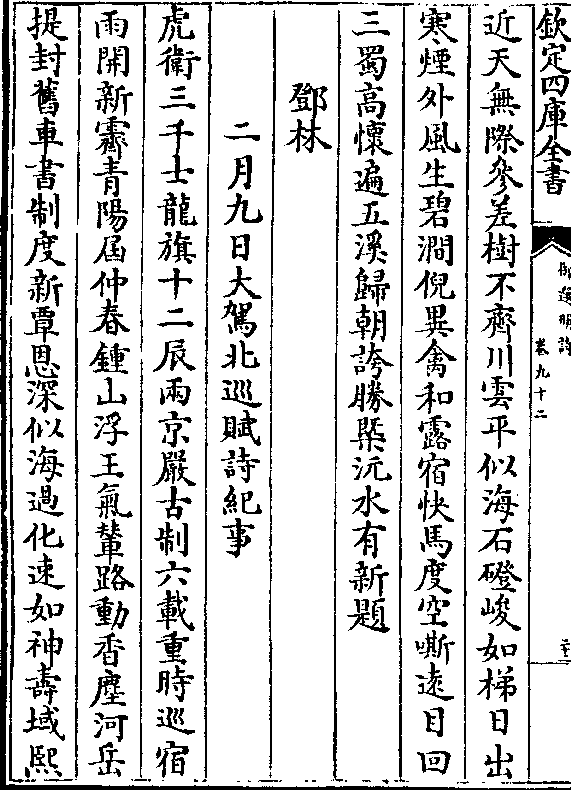 欽定四庫全書
御選明詩
卷九十二
近天無際參差樹不齊川雲平似海石磴峻如梯日出
寒煙外風生碧澗倪異禽和露宿快馬度空嘶遠目回
三蜀高懷遍五溪歸朝誇勝槩沅水有新題
鄧林
二月九日大駕北巡賦詩紀事
虎衛三千士龍旗十二辰兩京嚴古制六載重時巡宿
雨開新霽青陽屆仲春鍾山浮王氣輦路動香塵河岳
提封舊車書制度新覃恩深似海過化速如神壽域熙